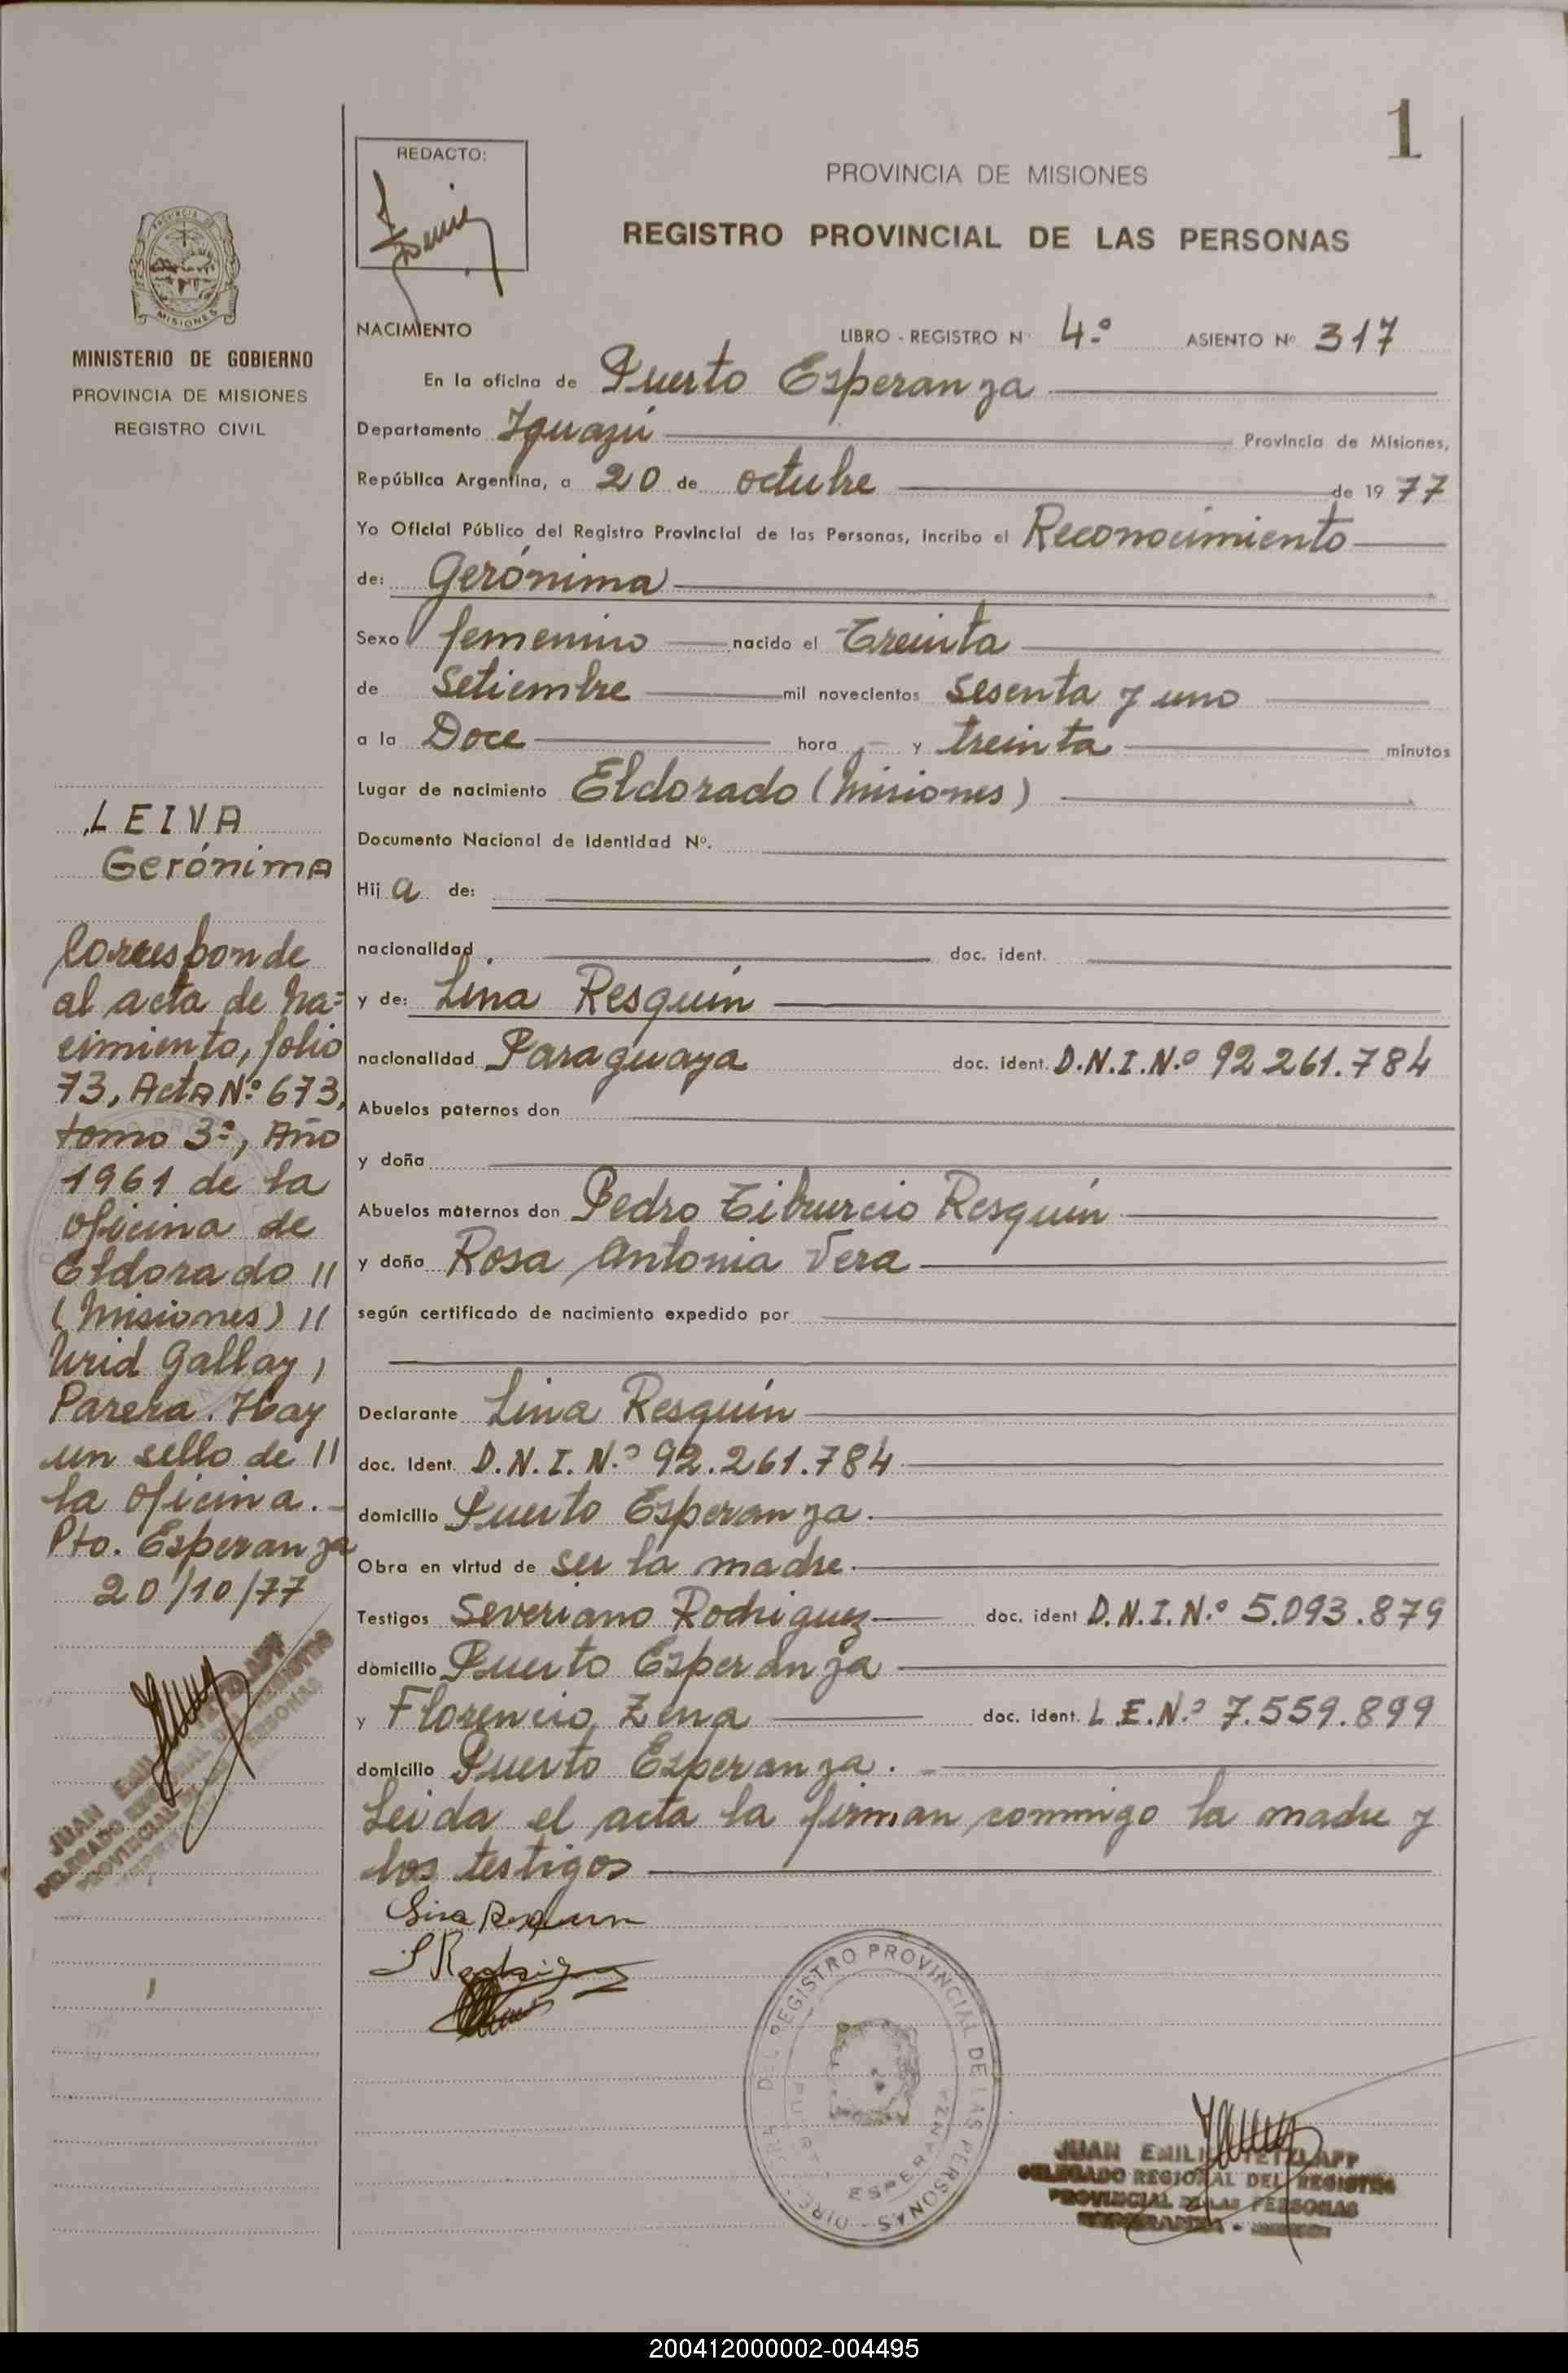 1
REDACTO:
PROVINCIA DE MISIONES
REGISTRO PROVINCIAL DE LAS PERSONAS
PROVINCIA DE
MISIONES
MINISTERIO DE GOBIERNO
PROVINCIA DE MISIONES
REGISTRO CIVIL
NACIMIENTO LIBRO - REGISTRO N° 4.º ASIENTO Nº 317
En la oficina de Puerto Esperanza
Departamento Iguazú Provincia de Misiones,
República Argentina, a 20 de octubre de 1977
Yo Oficial Público del Registro Provincial de las Personas, incribo el Reconocimiento
de: Gerónima
Sexo femenino nacido el Treinta
de Setiembre mil novecientos sesenta y uno
a la Doce hora y treinta minutos
Lugar de nacimiento Eldorado (Misiones)
Documento Nacional de Identidad Nº.
Hij a de:
nacionalidad doc. ident.
y de: Lina Resquín
nacionalidad Paraguaya doc. ident. D.N.I.N.º 92 261.784
Abuelos paternos don
y doña
Abuelos maternos don Pedro Tiburcio Resquín
y doña Rosa Antonia Vera
según certificado de nacimiento expedido por
Declarante Lina Resquín
doc. Ident. D.N.I. N.º 92.261.784
domicilio Puerto Esperanza.
Obra en virtud de ser la madre.
Testigos Severiano Rodriguez doc. ident D.N.I.N.º 5.093.879
domicilio Puerto Esperanza
y Florencio Zena doc. ident. L.E.N.º 7.559.899
domicilio Puerto Esperanza.
Leida el acta la firman conmigo la madre y
los testigos
Lina Resquin
S Rodriguez
LEIVA
Gerónima
Corresponde
al acta de na=
cimiento, folio
73, Acta N.º 673,
tomo 3º, Año
1961 de la
oficina de
Eldorado //
(Misiones) //
Urid Gallay,
Parera. Hay
un sello de //
la oficina.-
Pto. Esperanza
20/10/77
JUAN EMILI TETZLAFF
DELEGADO REGIONAL DEL REGISTRO
PROVINCIAL DE LAS PERSONAS
DEL REGISTRO PROVINCIAL DE LAS PERSONAS -
PUERTO ESPERANZA
JUAN EMILI TETZLAFF
DELEGADO REGIONAL DEL REGISTRO
PROVINCIAL DE LAS PERSONAS
200412000002-004495